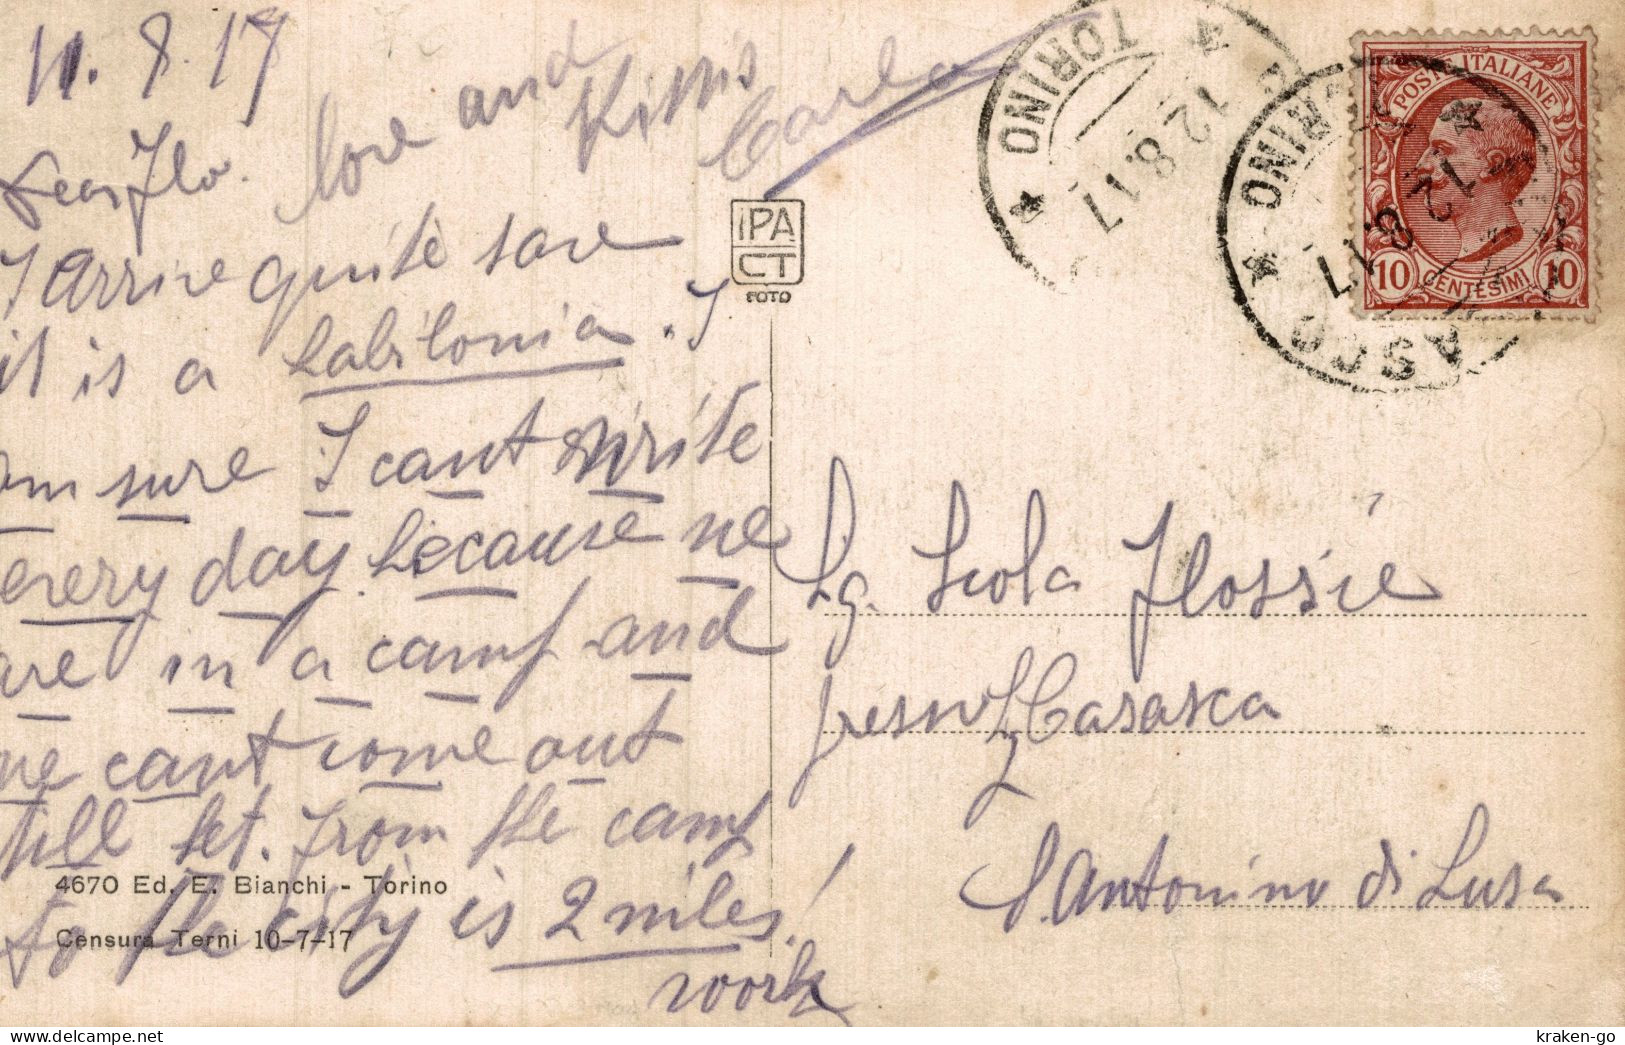 11.8.17
Dear Flo.
love and
Kisses
Carlo
I arrive quite save
it is a babilonia. I
am sure I cant write
every day because we
are in a camp and
we cant come out
till set. from the camp
to the city is 2 miles!
work
IPA
CT
FOTO
4670 Ed. E. Bianchi - Torino
Censura Terni 10-7-17
TORINO
12.8.17
TORINO
12.8.17
ASCO
POSTE ITALIANE
10 CENTESIMI 10
Sg. Scola Flossie
presso Casasca
S. Antonino di Susa
kraken-go